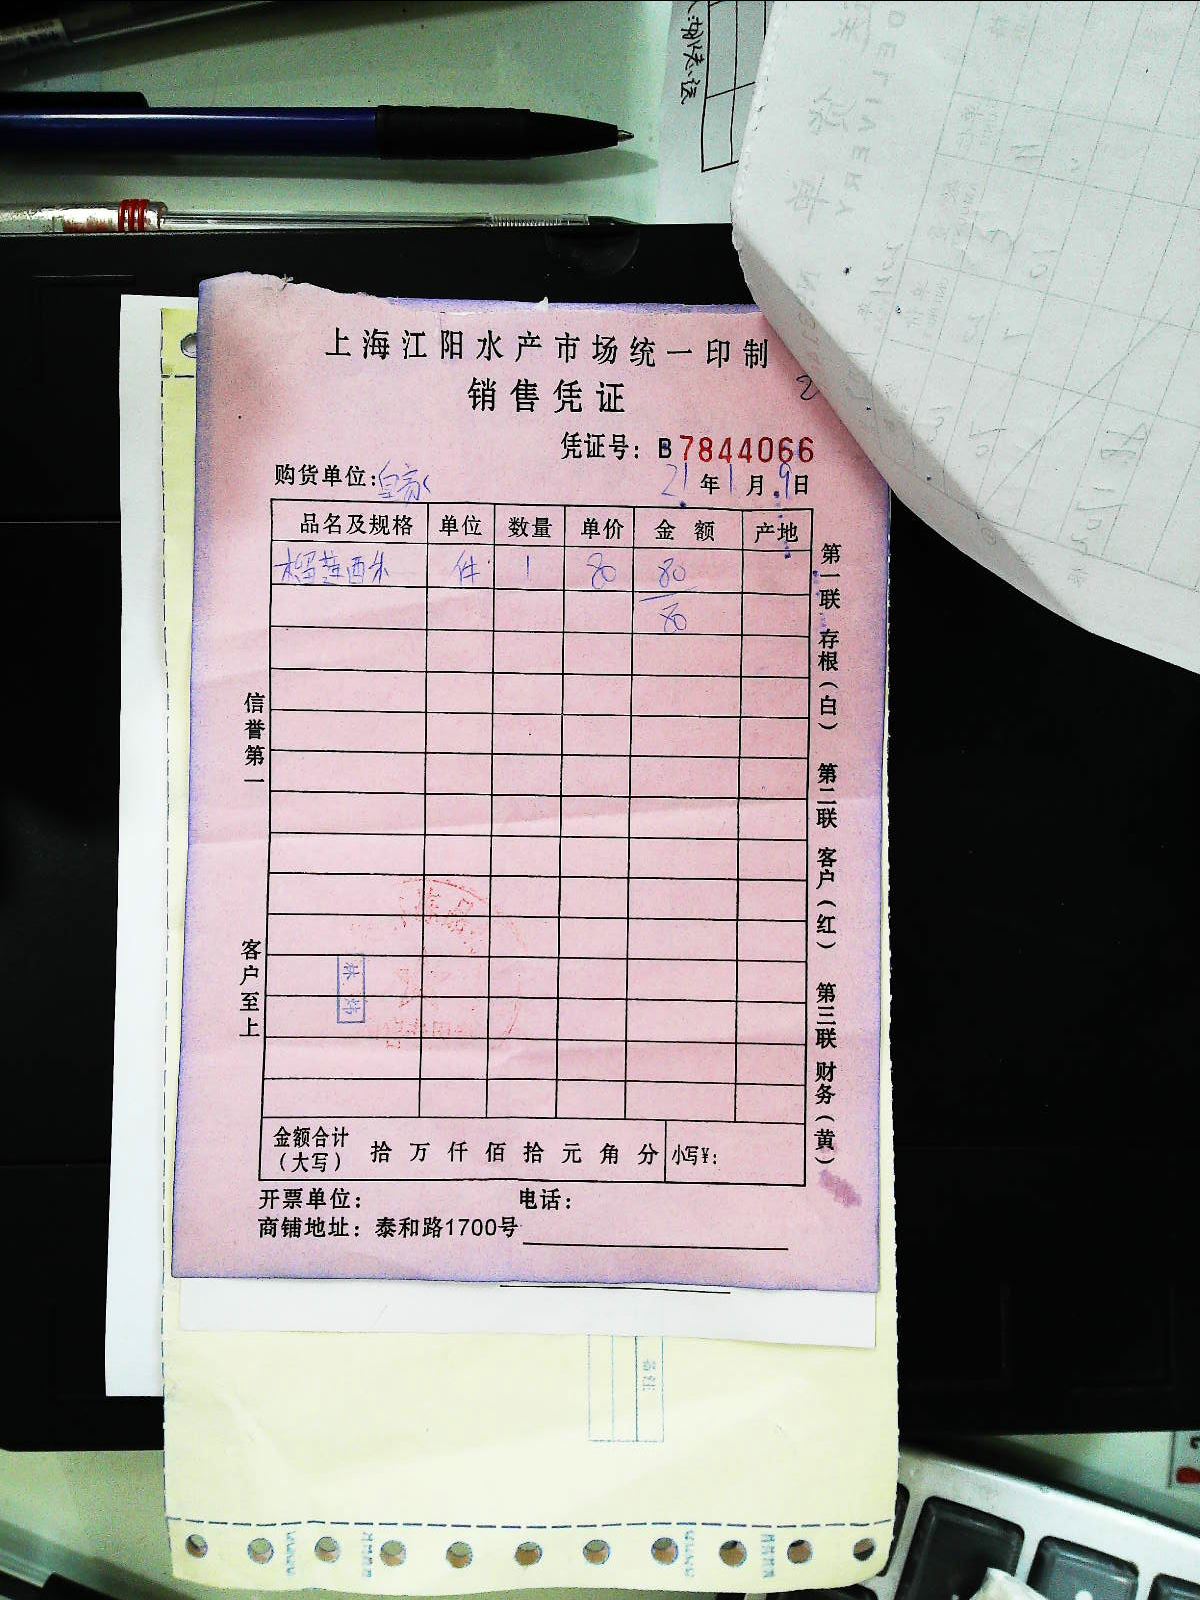 上海江阳水产市场统一印制
销售凭证
凭证号: B7844066
购货单位: 皇家 21年1月9日
品名及规格 单位 数量 单价 金额 产地
榴莲西米 件 1 80 80
80
信誉第一
客户至上
第一联 存根(白) 第二联 客户(红) 第三联 财务(黄)
金额合计(大写) 拾万仟佰拾元角分 小写¥:
开票单位: 电话:
商铺地址: 泰和路1700号